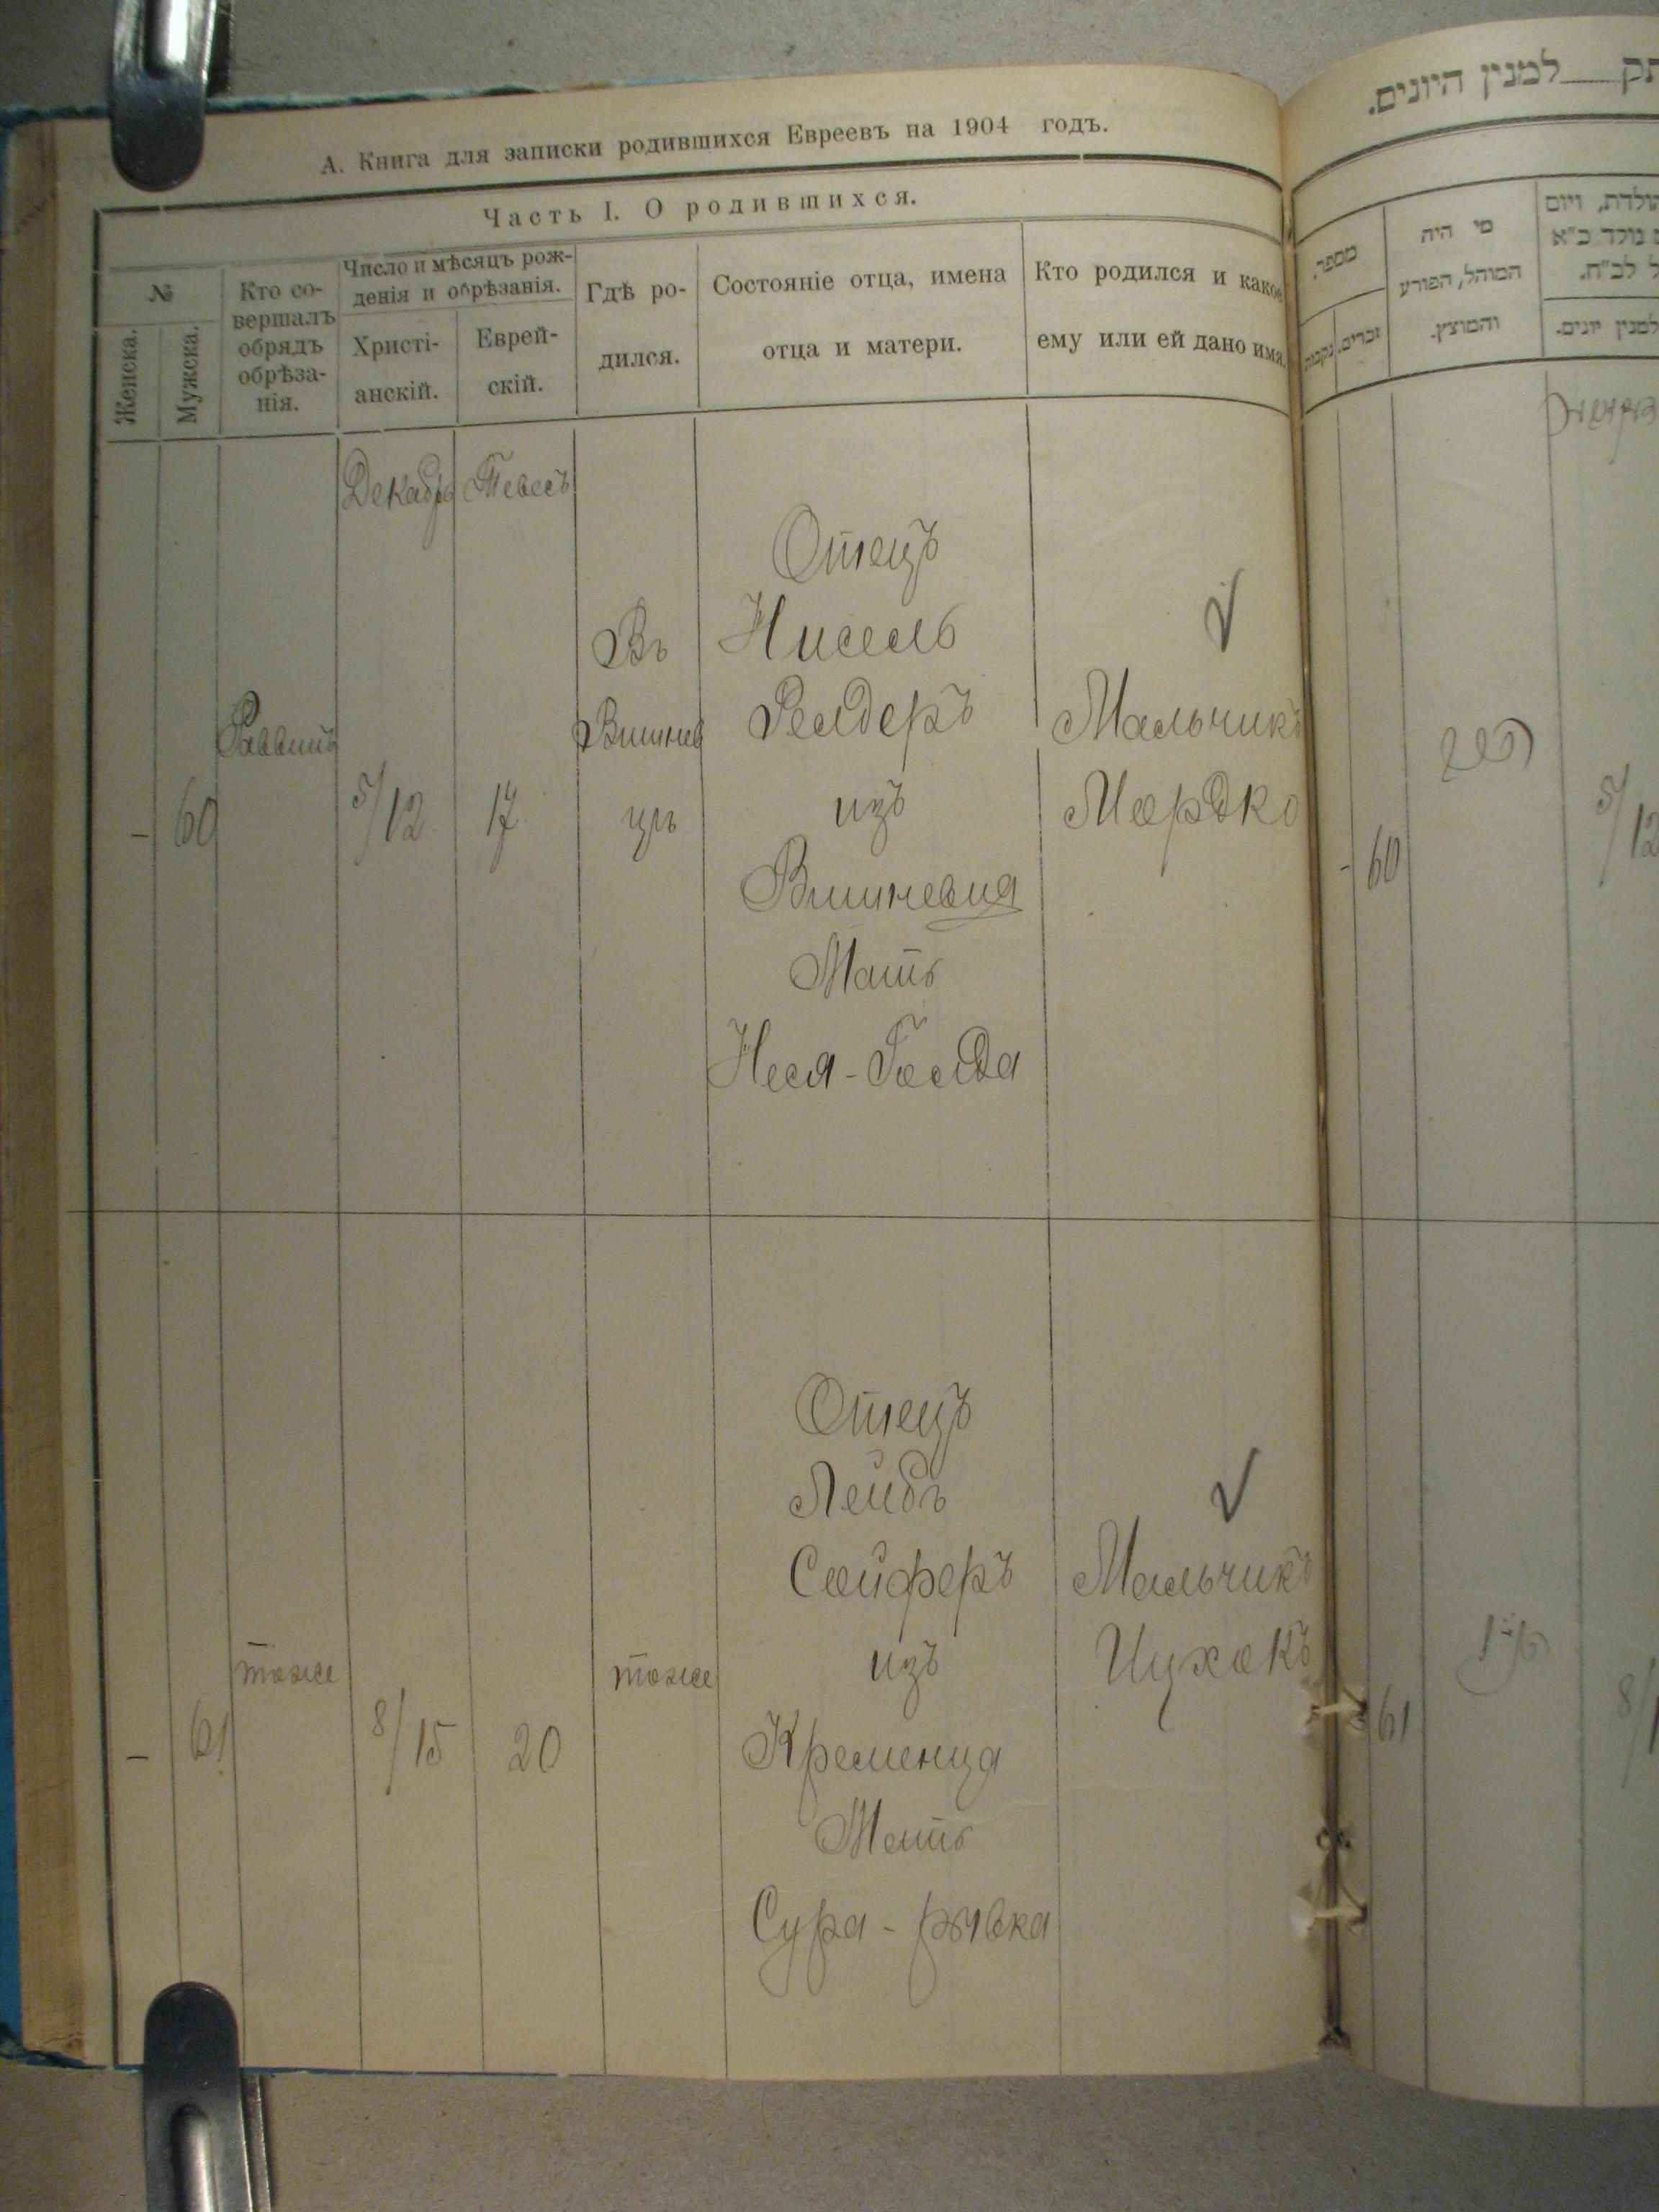 А. Книга для записки родившихся Евреевъ на 1904 годъ.
Часть I. О родившихся.
№
Женска.
Мужска.
Кто со-
вершалъ
обрядъ
обрѣза-
нія.
Число и мѣсяцъ рож-
денія и обрѣзанія.
Христі-
анскій.
Еврей-
скій.
Гдѣ ро-
дился.
Состояніе отца, имена
отца и матери.
Кто родился и какое
ему или ей дано имя.
Декабрь
Тевесъ
–
60
Раввинъ
5/12
17
Въ
Вишнев
цѣ
Отецъ
Нисель
Релдеръ
изъ
Вишневца
Мать
Неся-Голда
Мальчикъ
Мордко
–
61
тоже
8/15
20
тоже
Отецъ
Лейбъ
Сойферъ
изъ
Кременца
Мать
Сура-рывка
Мальчикъ
Ицхокъ
תק למנין היונים.
מספר.
נקבות
זכרים.
מי היה
המוהל, הפורע
והמוצץ.
למנין יונים.
- 60
5/12
61
8/1